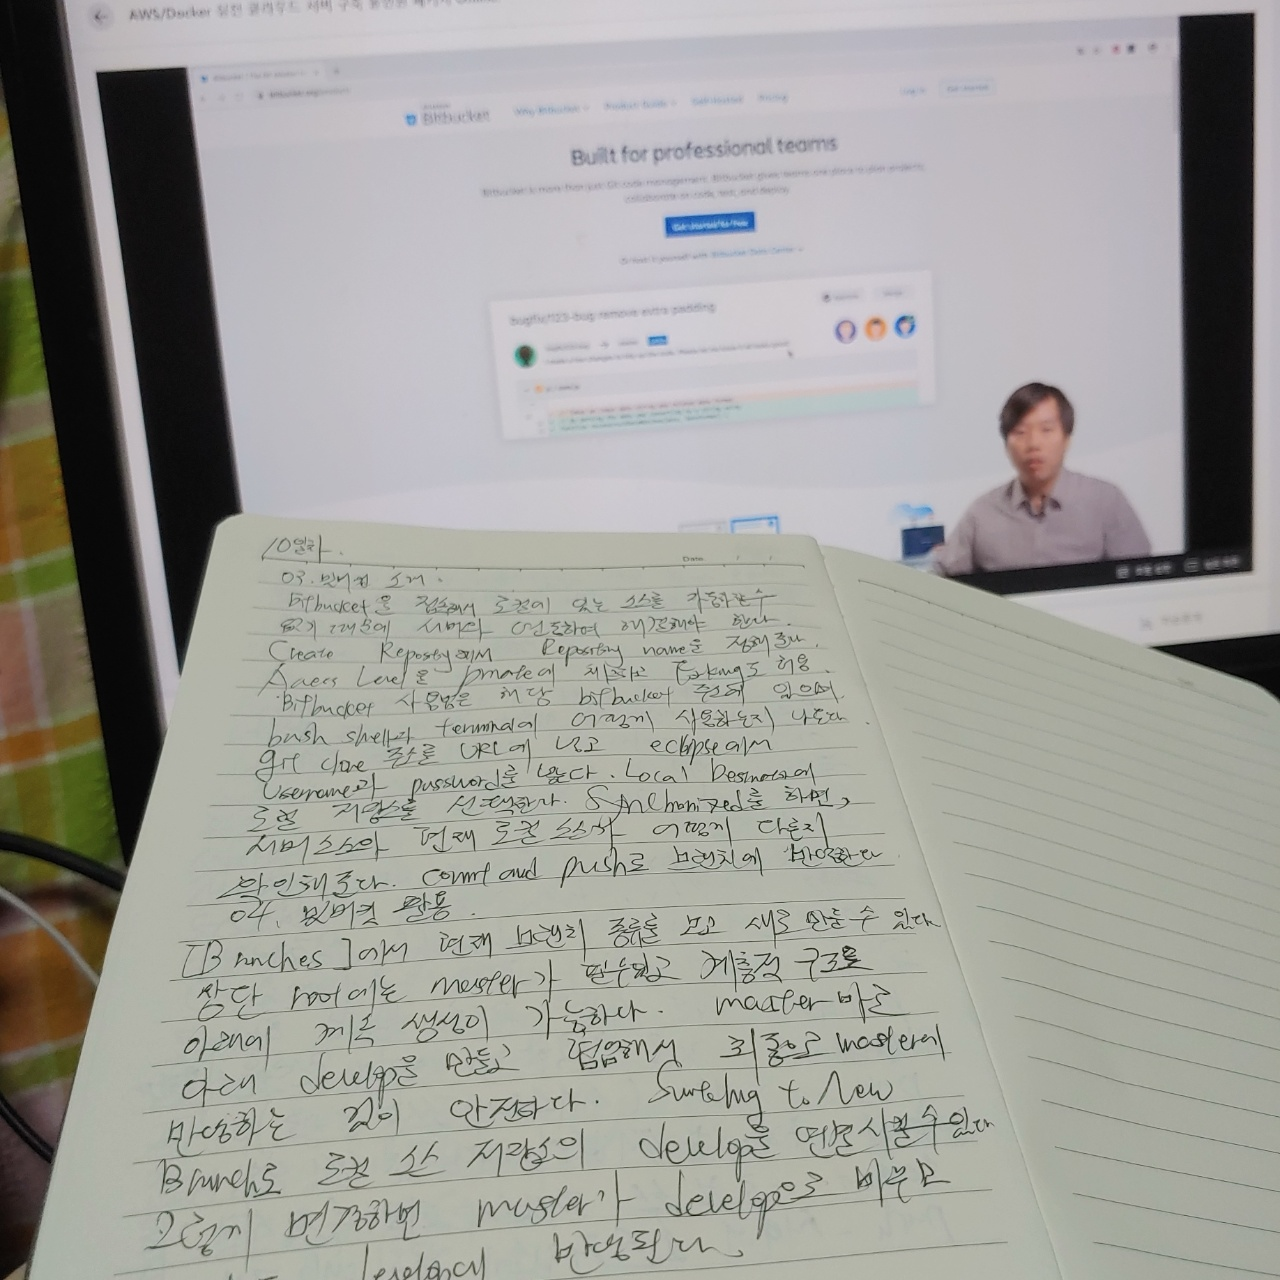 AWS/Docker 실전 클라우드 서버 구축
Bitbucket
Why Bitbucket
Product Guide
Self-Hosted
Pricing
Log in
Built for professional teams
Bitbucket is more than just Git code management. Bitbucket gives teams one place to plan projects,
collaborate on code, test, and deploy
Get started for free
Or host it yourself with Bitbucket Data Center
bugfix/123-bug remove extra padding
10일차.
Date
03. 빗버킷 소개.
Bitbucket을 접속해서 로컬에 있는 소스를
없기 때문에 서버와 연동하여 해결해야 한다.
Create Repository에서 Repository name을 정해준다.
Access Level을 private에 체크하고 Forking도 허용.
Bitbucket 사용법은 해당 bitbucket 주소에 있으며
bash shell과 terminal에 어떻게 사용하는지 나온다.
git clone 주소를 URL에 넣고 eclipse에서
Username과 password를 넣는다. Local Destination에
로컬 저장소를 선택한다. Synchronized를 하면,
서버소스와 현재 로컬 소스가 어떻게 다른지
확인해준다. commit and push로 브랜치에 반영한다
04. 빗버킷 활용.
[Branches]에서 현재 브랜치 종류를 보고 새로 만들 수 있다
상단 root에는 master가 필수있고 계층적 구조로
아래에 계속 생성이 가능하다. master 바로
아래 develop을 만들고 협업해서 최종으로 master에
반영하는 것이 안전하다. Switching to New
Branch로 로컬 소스 저장소의 develop을 연결시킬 수 있다
그렇게 변경하면 master가 develop으로 바뀌고
develop에 반영된다.